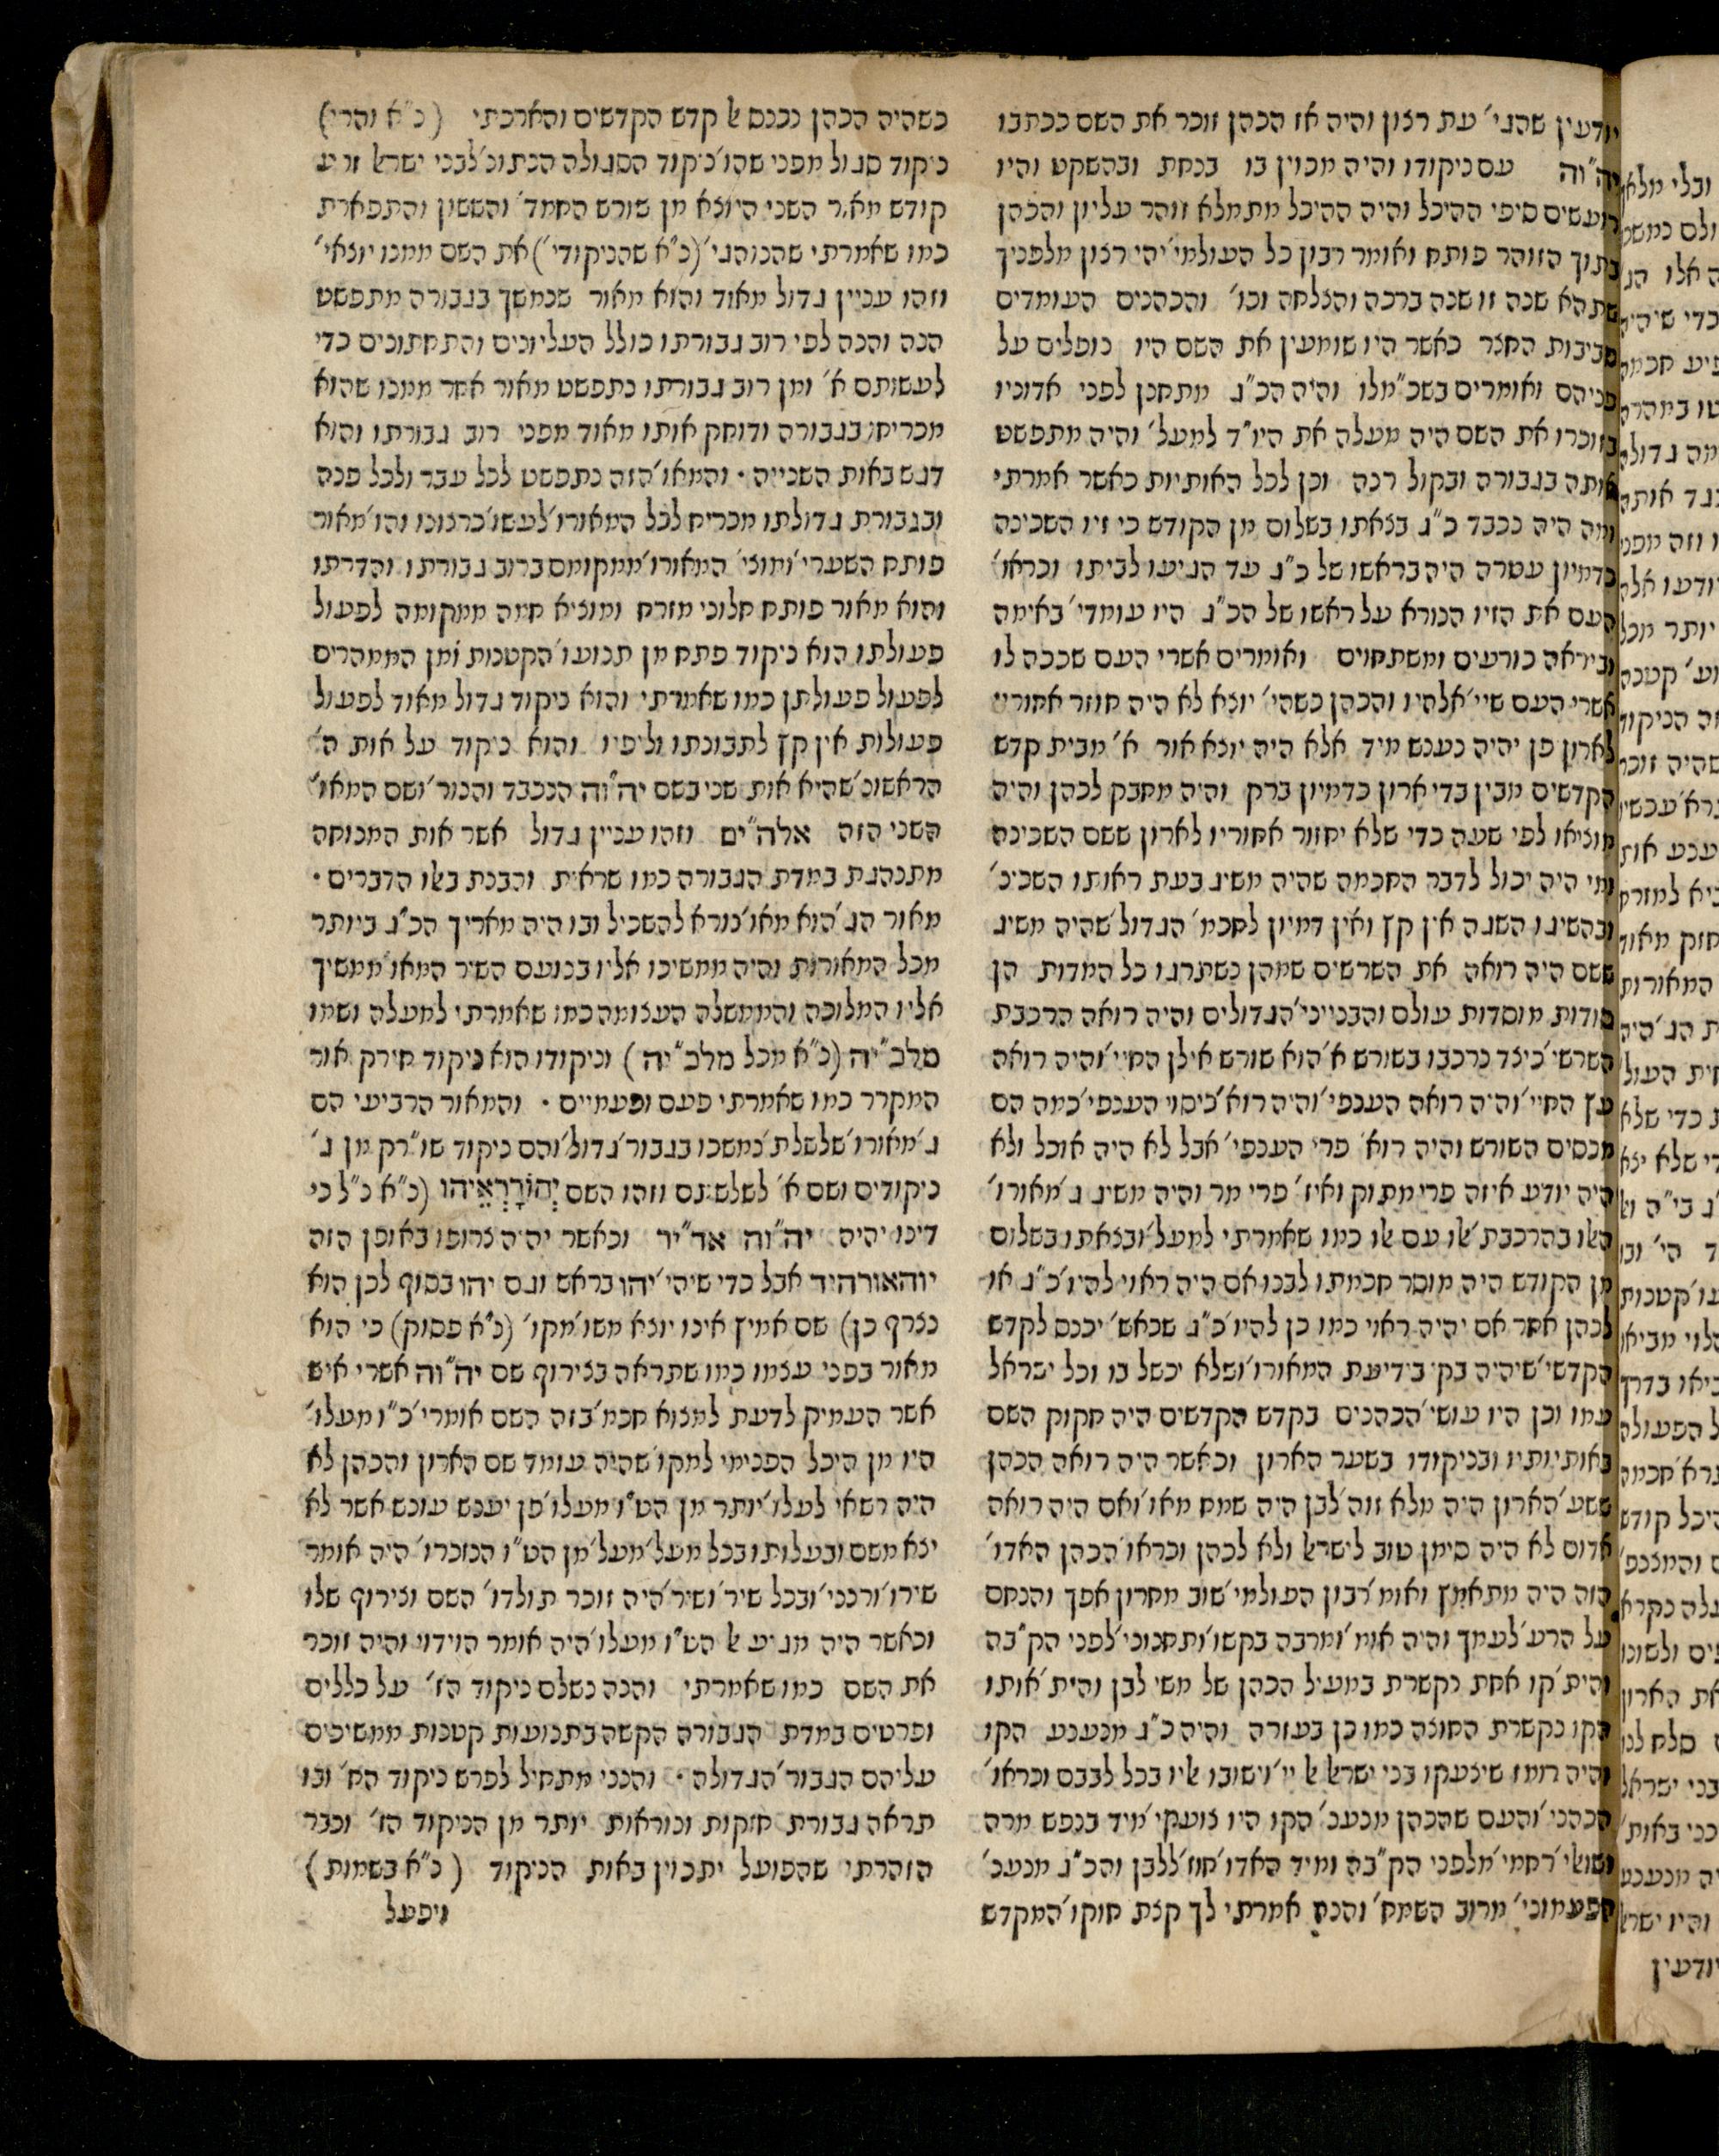 יודעין שהגי׳ עת רצון והיה אז הכהן זוכר את השם ככתבו
יה״וה עם ניקודו והיה מכוין בו בנחת ובהשקט והיו
רועשים סיפי ההיכל והיה ההיכל מתמלא זוהר עליון והכהן
בתוך הזוהר פותח ואומר רבון כל העולמי׳ יהי רצון מלפניך
שתהא שנה זו שנה ברכה והצלחה וכו׳ והכהנים העומדים
סביבות החצר כאשר היו שומעין את השם היו נופלים על
פניהם ואומרים בשכ״מלו והיה הכ״ג מתחנן לפני אדוניו
בזוכרו את השם היה מעלה את היו״ד למעל׳ והיה מתפשט
אותה בגבורה ובקול רנה וכן לכל האותיות כאשר אמרתי
ומה היה נכבד כ״ג בצאתו בשלום מן הקודש כי זיו השכינה
כדמיון עטרה היה בראשו של כ״ג עד הגיעו לביתו וכראו׳
העם את הזיו הנורא על ראשו של הכ״ג היו עומדי׳ באימה
וביראה כורעים ומשתחוים ואומרים אשרי העם שככה לו
אשרי העם שיי׳ אלהיו והכהן כשהי׳ יוצא לא היה חוזר אחוריו
לארון פן יהיה נענש מיד אלא היה יוצא אור א׳ מבית קדש
הקדשים מבין בדי ארון כדמיון ברק והיה מחבק לכהן והיה
מוציאו לפי שעה כדי שלא יחזור אחוריו לארון ששם השכינה
ומי היה יכול לדבר החכמה שהיה משיג בעת ראותו השכינ׳
ובהשיגו השגה אין קץ ואין דמיון לחכמ׳ הגדול׳ שהיה משיג
ששם היה רואה את השרשים שמהן נשתרגו כל המדות הן
סודות מוסדות עולם והבנייני׳ הגדולים והיה רואה הרכבת
השרשי׳ כיצד נרכבו בשורש א׳ הוא שורש אילן החיי׳ והיה רואה
עץ החיי׳ והיה רואה הענפי׳ והיה רוא׳ כיסוי הענפי׳ כמה הם
מכסים השורש והיה רוא׳ פרי הענפי׳ אבל לא היה אוכל ולא
היה יודע איזה פרי מתוק ואיז׳ פרי מר והיה משיג ג׳ מאורו׳
האו בהרכבת׳ או עם או כמו שאמרתי למעל׳ ובצאתו בשלום
מן הקודש היה מוסר חכמתו לבנו אם היה ראוי להיו׳ כ״ג או
לכהן אחר אם יהיה ראוי כמו כן להיו׳ כ״ג שכאש׳ יכנס לקדש
הקדשי׳ שיהיה בקי בידיעת המאורו׳ ושלא יכשל בו וכל ישראל
עמו וכן היו עושי׳ הכהנים בקדש הקדשים היה חקוק השם
באותיותיו ובניקודו בשער הארון וכאשר היה רואה הכהן
ששע׳ הארון היה מלא זוה׳ לבן היה שמח מאו׳ ואם היה רואה
אדום לא היה סימן טוב לישראל ולא לכהן וכראו׳ הכהן האדו׳
הזה היה מתאמץ ואומ׳ רבון העולמי׳ שוב מחרון אפך והנחם
על הרע׳ לעמך והיה אומ׳ ומרבה בקשו׳ ותחנוני׳ לפני הק״בה
והית׳ קו אחת נקשרת במעיל הכהן של משי לבן והית׳ אותו
הקו נקשרת החוצה כמו כן בעזרה והיה כ״ג מנענע הקו
והיה רומז שיצעקו בני ישראל אל יי׳ וישובו אליו בכל לבבם וכראו׳
הכהני׳ והעם שהכהן מנענ׳ הקו היו צועקי׳ מיד בנפש מרה
ושואלי׳ רחמי׳ מלפני הק״בה ומיד האדו׳ חוז׳ ללבן והכ״ג מנענ׳
הפעמוני׳ מרוב השמח׳ והנה אמרתי לך קצת חוקו׳ המקדש
כשהיה הכהן נכנס אל קדש הקדשים והארכתי (נ״א והרי)
ניקוד סגול מפני שהו׳ ניקוד הסגולה הנתונ׳ לבני ישראל זרע
קודש מאור השני היוצא מן שורש החמד׳ והששון והתפארת
כמו שאמרתי שהנוהגי׳ (נ״א שהניקודי׳) את השם ממנו יוצאי׳
וזהו עניין גדול מאוד והוא מאור שנמשך בגבורה מתפשט
הנה והנה לפי רוב גבורתו כולל העליונים והתחתונים כדי
לעשותם א׳ ומן רוב גבורתו נתפשט מאור אחר ממנו שהוא
מכריחו בגבורה ודוחק אותו מאוד מפני רוב גבורתו והוא
דגש באות השנייה · והמאו׳ הזה נתפשט לכל עבר ולכל פנה
ובגבורת גדולתו מכריח לכל המאורו׳ לעשו׳ כרצונו והו׳ מאור
פותח השערי׳ ומוצי׳ המאורו׳ ממקומם ברוב גבורתו והדרתו
והוא מאור פותח חלוני מזרח ומוציא חמה ממקומה לפעול
פעולתו הוא ניקוד פתח מן תנועו׳ הקטנות ומן הממהרים
לפעול פעולתן כמו שאמרתי והוא ניקוד גדול מאוד לפעול
פעולות אין קץ לתבונתו וליפיו והוא ניקוד על אות ה׳
הראשונ׳ שהיא אות שני בשם יה״וה הנכבד והנור׳ ושם המאו׳
השני הזה אלה״ים וזהו עניין גדול אשר אות המנוחה
מתנהגת במדת הגבורה כמו שראית והבנת באלו הדברים ·
מאור הג׳ הוא מאו׳ נורא להשכיל ובו היה מאריך הכ״ג ביותר
מכל המאורות והיה ממשיכו אליו בנועם השיר המאו׳ ממשיך
אליו המלוכה והממשלה העצומה כמו שאמרתי למעלה ושמו
מלכ״יה (נ״א מכל מלכ״יה) וניקודו הוא ניקוד חירק אור
המקרר כמו שאמרתי פעם ופעמיים · והמאור הרביעי הם
ג׳ מאורו׳ שלשלת׳ נמשכו בגבור׳ גדול׳ והם ניקוד שו״רק מן ג׳
ניקודים ושם א׳ לשלשתם וזהו השם (נ״א נ״ל כי
דינו יהיה יה״וה אד״יר וכאשר יהיה צרופו באופן הזה
יוהאורהיד אבל כדי שיהי׳ יהו בראש וגם יהו בסוף לכן הוא
נצרף כן) שם אמיץ אינו יוצא משו׳ מקו׳ (נ״א פסוק) כי הוא
מאור בפני עצמו כמו שתראה בצירוף שם יה״וה אשרי איש
אשר העמיק לדעת למצוא חכמ׳ בזה השם אומרי׳ כ״ו מעלו׳
היו מן היכל הפנימי למקו׳ שהיה עומד שם הארון והכהן לא
היה רשאי לעלו׳ יותר מן הט״ו מעלו׳ פן יענש עונש אשר לא
יצא משם ובעלותו בכל מעל׳ מעל׳ מן הט״ו הנזכרו׳ היה אומר
שירו׳ ורננו׳ ובכל שיר׳ ושיר׳ היה זוכר תולדו׳ השם וצירוף שלו
וכאשר היה מגיע אל הט״ו מעלו׳ היה אומר הוידוי והיה זוכר
את השם כמו שאמרתי והנה נשלם ניקוד הז׳ על כללים
ופרטים במדת הגבורה הקשה בתנועות קטנות ממשיכים
עליהם הגבור׳ הגדולה · והנני מתחיל לפרש ניקוד הח׳ ובו
תראה גבורת חזקות ונוראות יותר מן הניקוד הז׳ וכבר
הזהרתי שהפועל יתכוין באות הניקוד (נ״א בשמות)
ויפעל